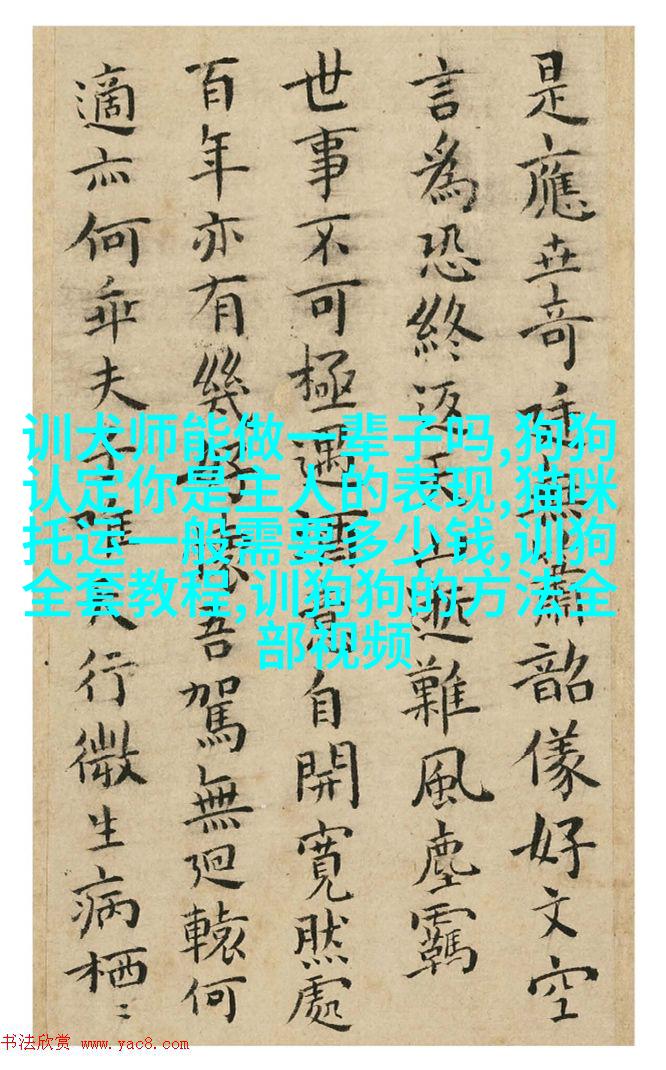 是應世奇無韶儀好文空
言爲恐終返難風塵羈
世事不可極遇酒自開寬然處
百年亦有幾好懷吾駕無迴轅何
適亦何乖夫子行微生病栖〻
训犬师能做一辈子吗,狗狗
认定你是主人的表现,猫咪
托运一般需要多少钱,训狗
全套教程,训狗狗的方法全
部视频
书法欣赏 www.yac8.com